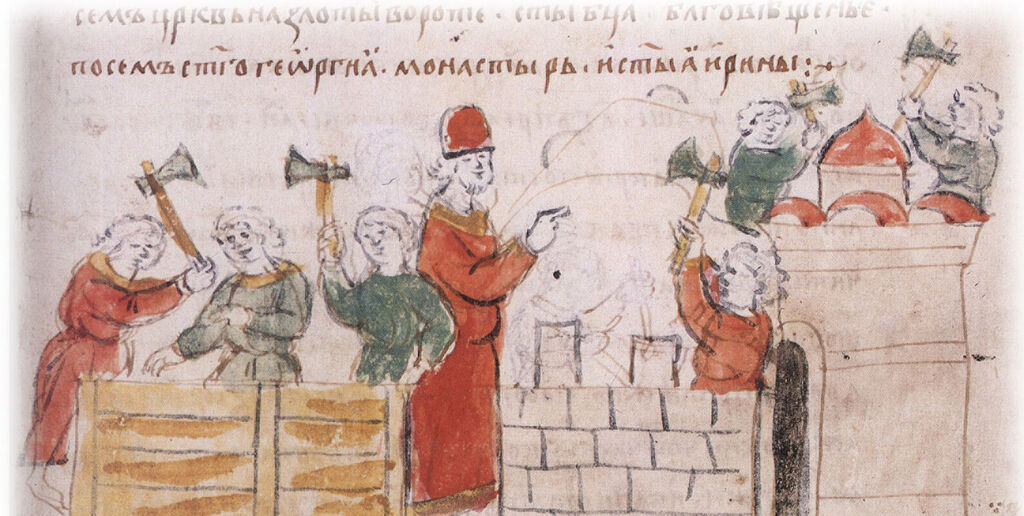 семъ црквь на злоты вороте · сты бца · благовѣщенье ·
посемъ стго геѡргиꙗ · монастырь · и стыꙗ ирины :~